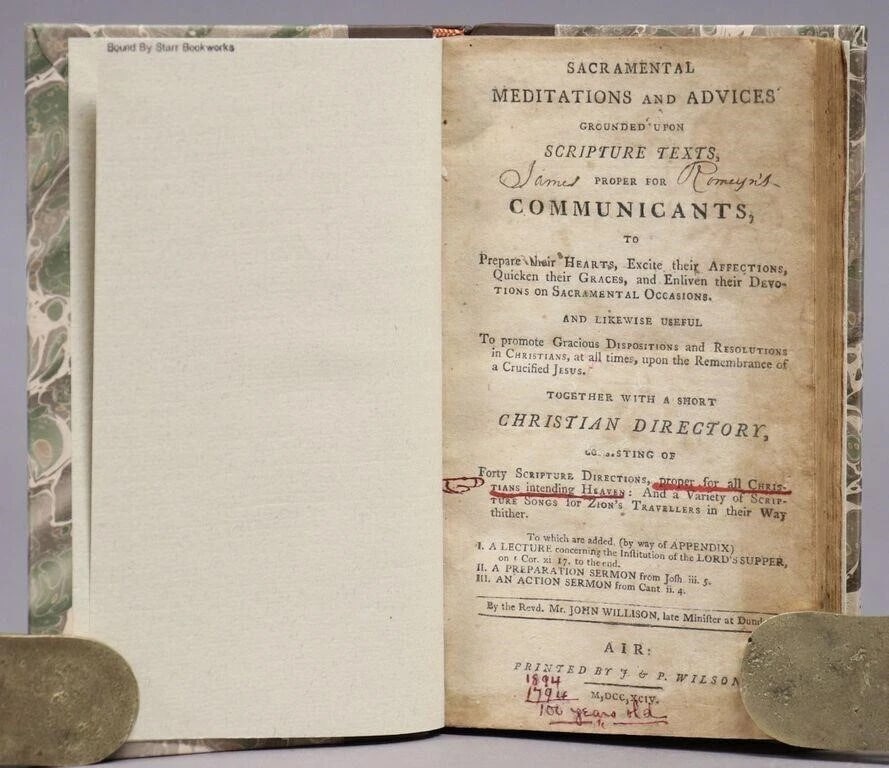 Bound By Starr Bookworks
SACRAMENTAL
MEDITATIONS AND ADVICES
GROUNDED UPON
SCRIPTURE TEXTS,
James PROPER FOR Romeyn's
COMMUNICANTS,
TO
Prepare their HEARTS, Excite their AFFECTIONS,
Quicken their GRACES, and Enliven their DEVO-
TIONS on SACRAMENTAL OCCASIONS.
AND LIKEWISE USEFUL
To promote Gracious DISPOSITIONS and RESOLUTIONS
in CHRISTIANS, at all times, upon the Remembrance of
a Crucified JESUS.
TOGETHER WITH A SHORT
CHRISTIAN DIRECTORY,
CONSISTING OF
Forty SCRIPTURE DIRECTIONS, proper for all CHRIS-
TIANS intending HEAVEN: And a Variety of SCRIP-
TURE SONGS for ZION'S TRAVELLERS in their Way
thither.
To which are added, (by way of APPENDIX)
I. A LECTURE concerning the Institution of the LORD'S SUPPER,
on 1 Cor. xi 17. to the end.
II. A PREPARATION SERMON from Josh. iii. 5.
III. AN ACTION SERMON from Cant. ii. 4.
By the Revd. Mr. JOHN WILLISON, late Minister at Dund
AIR:
PRINTED BY J. & P. WILSON
1894
1794 M,DCC,XCIV.
100 years old